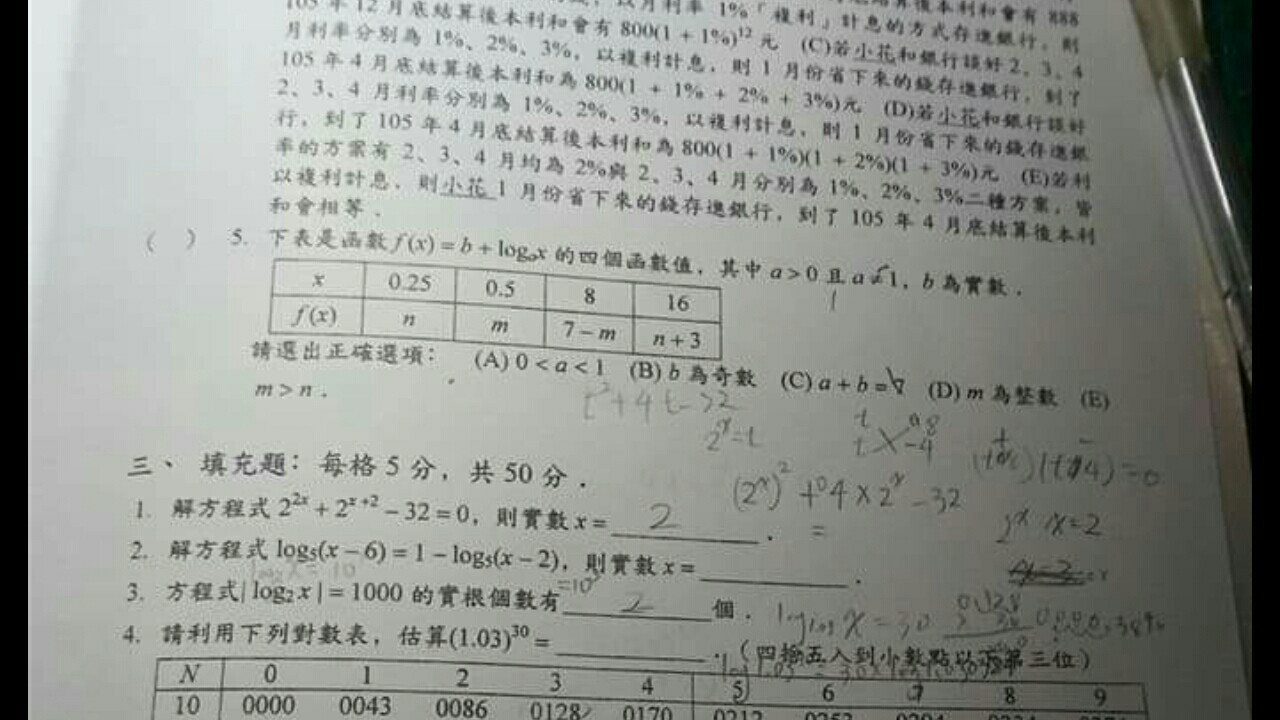 結算後本利和會有 888
以月利率 1%「複利」計息的方式存進銀行，則
105 年 12 月底結算後本利和會有 800(1 + 1%)¹² 元 (C)若小花和銀行談好 2、3、4
月利率分別為 1%、2%、3%，以複利計息，則 1 月份省下來的錢存進銀行，到了
105 年 4 月底結算後本利和為 800(1 + 1% + 2% + 3%)元 (D)若小花和銀行談好
2、3、4 月利率分別為 1%、2%、3%，以複利計息，則 1 月份省下來的錢存進銀
行，到了 105 年 4 月底結算後本利和為 800(1 + 1%)(1 + 2%)(1 + 3%)元 (E)若利
率的方案有 2、3、4 月均為 2%與 2、3、4 月分別為 1%、2%、3%二種方案，皆
以複利計息，則小花 1 月份省下來的錢存進銀行，到了 105 年 4 月底結算後本利
和會相等．
( ) 5. 下表是函數 f(x) = b + logₐx 的四個函數值，其中 a > 0 且 a ≠ 1，b 為實數．
x 0.25 0.5 8 16
f(x) n m 7 − m n + 3
請選出正確選項： (A) 0 < a < 1 (B) b 為奇數 (C) a + b = (D) m 為整數 (E)
m > n．
t² + 4t − 32
2ˣ = t
t 8
t −4
三、 填充題：每格 5 分，共 50 分．
(2ˣ)² + 4 × 2ˣ − 32
1. 解方程式 2²ˣ + 2ˣ⁺² − 32 = 0，則實數 x = 2 ．
x = 2
2. 解方程式 log₅(x − 6) = 1 − log₅(x − 2)，則實數 x = ．
3. 方程式| log₂ x | = 1000 的實根個數有 2 個．
4. 請利用下列對數表，估算(1.03)³⁰ = ．(四捨五入到小數點以下第三位)
N 0 1 2 3 4 5 6 7 8 9
10 0000 0043 0086 0128 0170 0212